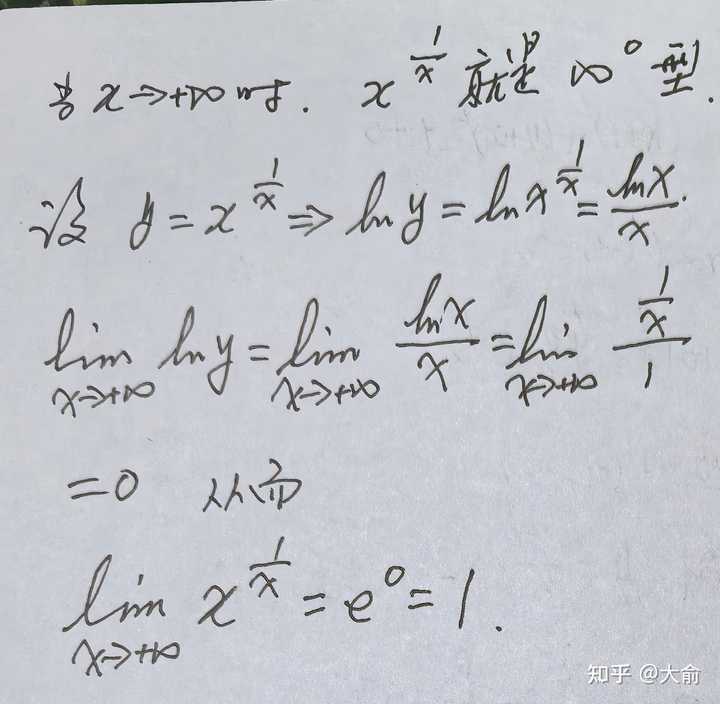 当 x→+∞ 时. x^{\frac{1}{x}} 就是 ∞^0 型.
设 y = x^{\frac{1}{x}} ⇒ ln y = ln x^{\frac{1}{x}} = \frac{ln x}{x}.
\lim_{x→+∞} ln y = \lim_{x→+∞} \frac{ln x}{x} = \lim_{x→+∞} \frac{\frac{1}{x}}{1}
= 0 从而
\lim_{x→+∞} x^{\frac{1}{x}} = e^0 = 1.
知乎 @大俞